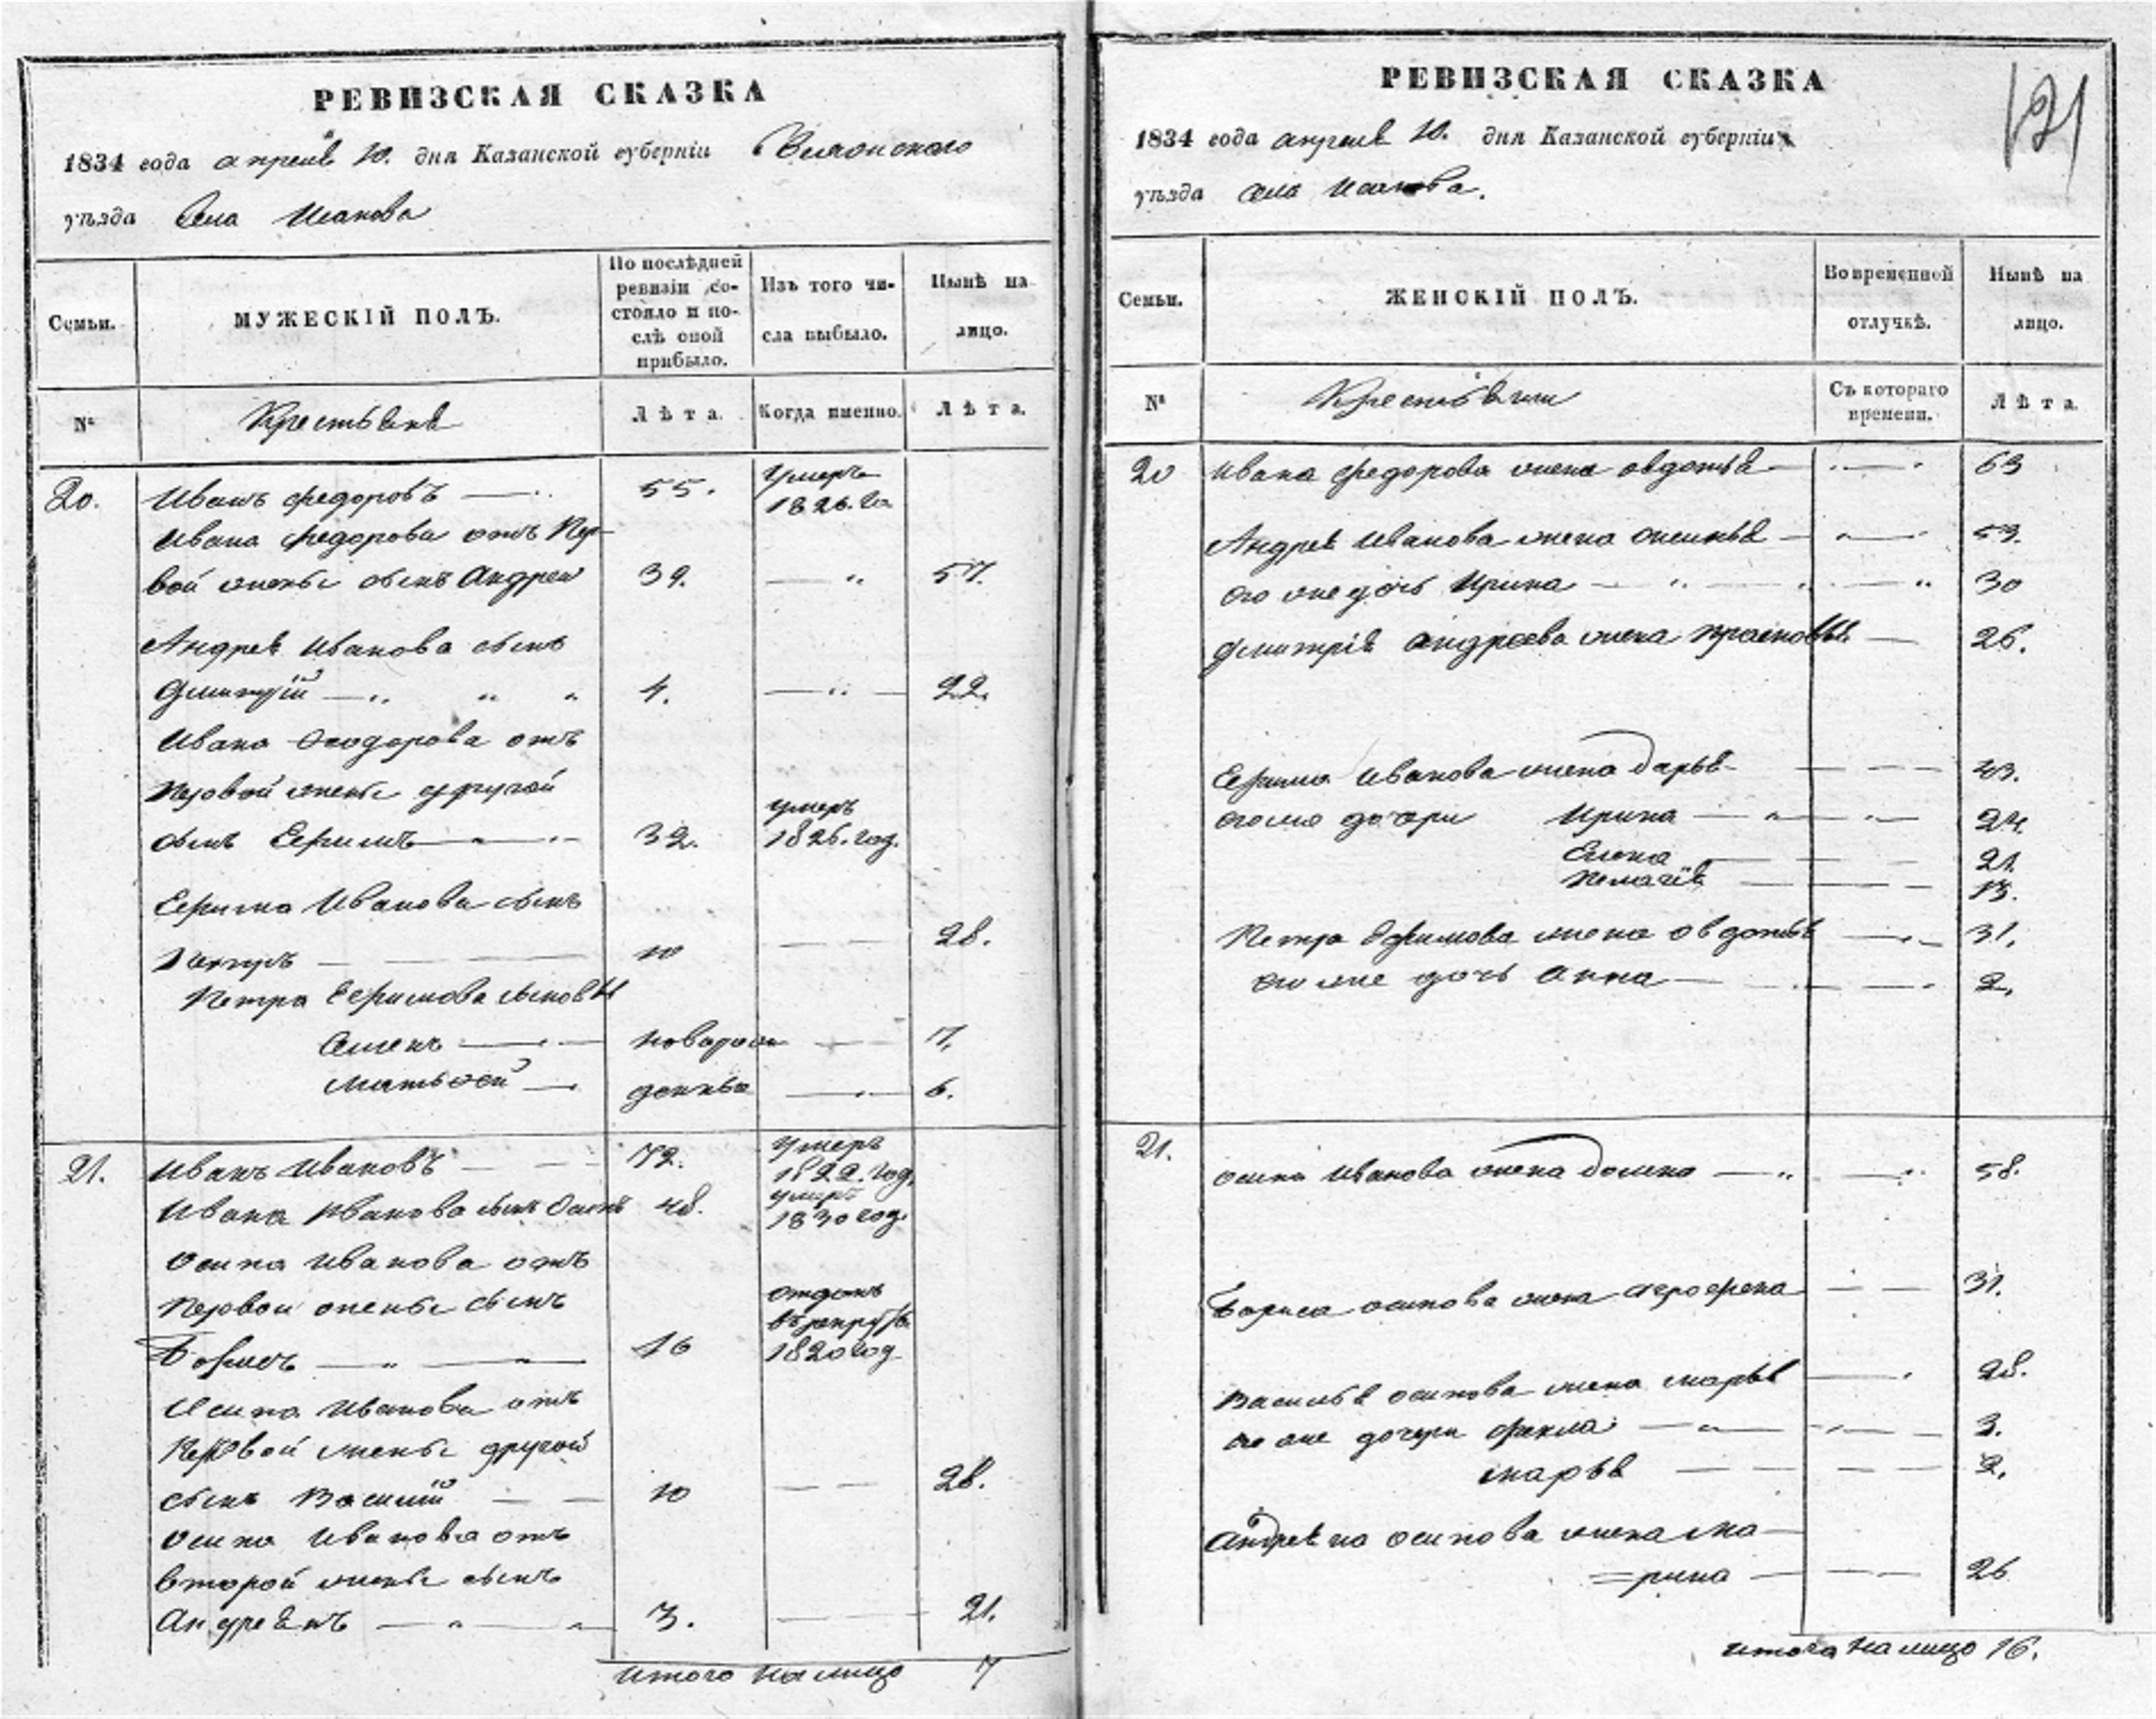 РЕВИЗСКАЯ СКАЗКА
1834 года апреля 10. дня Казанской губерніи
уѣзда Села Исакова
Семьи.
МУЖЕСКІЙ ПОЛЪ.
По послѣдней ревизіи состояло и послѣ оной прибыло.
Изъ того числа выбыло.
Нынѣ на лицо.
№
Крестьяне
Лѣта.
Когда именно.
Лѣта.
20. Иванъ Федоровъ 55. Умеръ 1826. го
Ивана Федорова отъ Пер-
вой жены сынъ Андрей 39. 57.
Андрея Иванова сынъ
Дмитрій 4. 22.
Ивана Феодорова отъ
Первой жены другой
сынъ Ефимъ 32. умеръ 1826. год.
Ефима Иванова сынъ
Петръ 10 28.
Петра Ефимова сыновья
Семенъ новорож 7.
Матвей денные 6.
21. Иванъ Ивановъ 72. Умеръ 1822. год.
Ивана Иванова сынъ Осипъ 48. умеръ 1830 год.
Осипа Иванова отъ
Первой жены сынъ
Борисъ 16 отданъ въ рекруты 1820 год
Осипа Иванова отъ
Первой жены другой
сынъ Василій 10 28.
Осипа Иванова отъ
второй жены сынъ
Андреянъ 3. 21.
итого на лицо 7
РЕВИЗСКАЯ СКАЗКА
121
1834 года апреля 10. дня Казанской губерніи
уѣзда села Исакова.
Семьи.
ЖЕНСКІЙ ПОЛЪ.
Во временной отлучкѣ.
Нынѣ на лицо.
№
Крестьянки
Съ котораго времени.
Лѣта.
20 Ивана Федорова жена Овдотья 63
Андрея Иванова жена Оксинья 59.
его же дочь Ирина 30
Дмитрія Андреева жена Прасковья 26.
Ефима Иванова жена Дарья 43.
его же дочери Ирина 24.
Елена 21.
Пелагія 13.
Петра Ефимова жена Овдотья 31.
его же дочь Анна 2.
21. Осипа Иванова жена Домна 58.
Бориса Осипова жена 31.
Василья Осипова жена Марья 28.
его же дочери Фекла 3.
Марья 2.
Андреяна Осипова жена Ма-
=рина 26
итого на лицо 16.